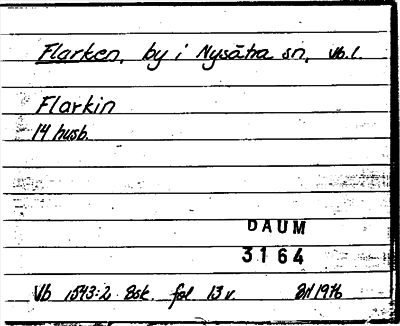 Flarken, by i Nysätra sn, Vb.l.
Flarkin
14 husb.
DAUM
3164
Vb 1543:2 Bsk. fol 13 v. BH 1976